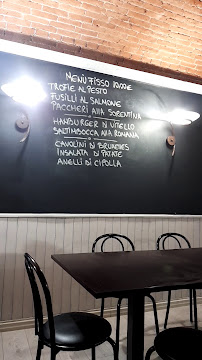 MENÙ FISSO 10,00€
TROFIE AL PESTO
FUSILLI AL SALMONE
PACCHERI ALLA SORRENTINA
HAMBURGER DI VITELLO
SALTIMBOCCA ALLA ROMANA
CAVOLINI DI BRUXELLES
INSALATA DI PATATE
ANELLI DI CIPOLLA